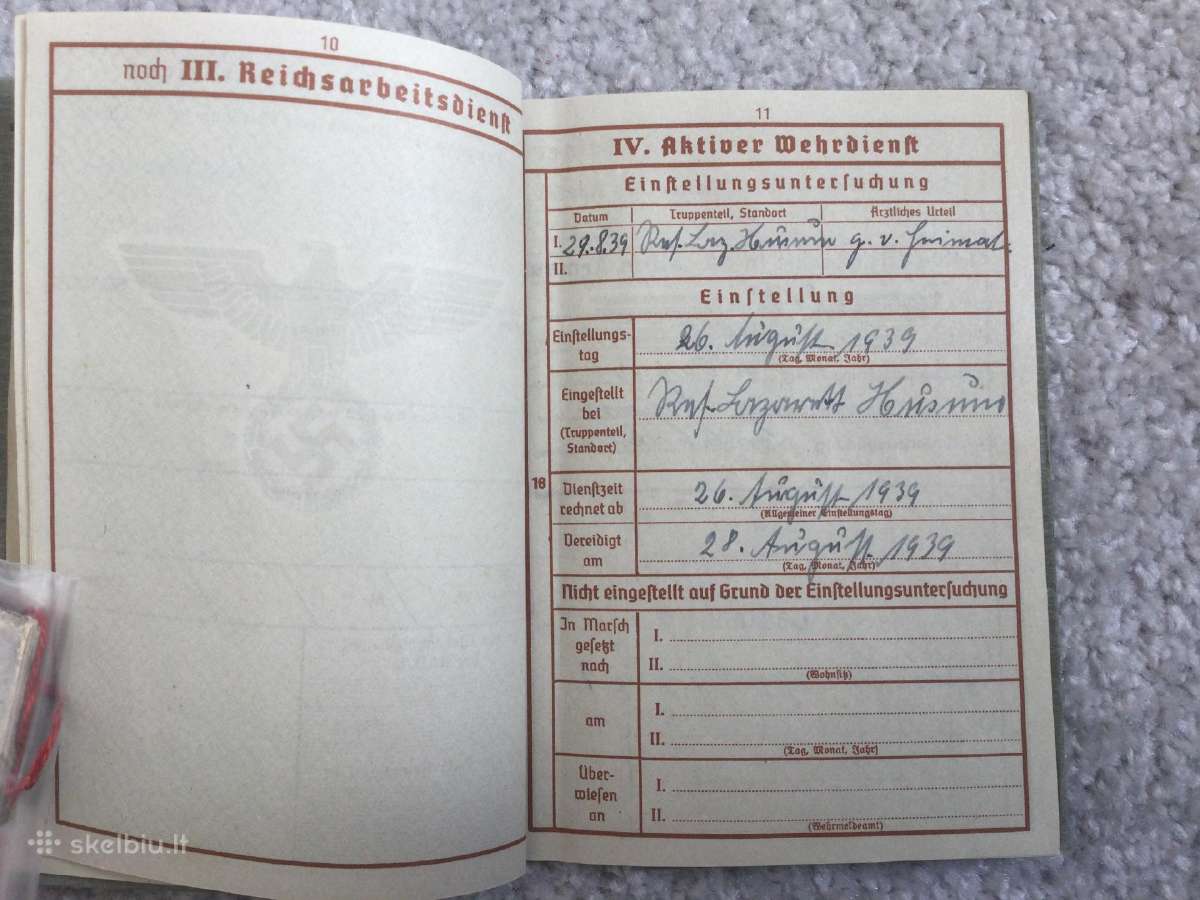 10
noch III. Reichsarbeitsdienst
11
IV. Aktiver Wehrdienst
Einstellungsuntersuchung
Datum Truppenteil, Standort Ärztliches Urteil
I. 29.8.39 Res. Laz. Husum g. v. Heimat.
II.
Einstellung
Einstellungs-
tag
26. August 1939
(Tag, Monat, Jahr)
Eingestellt
bei
(Truppenteil,
Standort)
Res. Lazarett Husum
16
Dienstzeit
rechnet ab
26. August 1939
(Allgemeiner Einstellungstag)
Vereidigt
am
28. August 1939
(Tag, Monat, Jahr)
Nicht eingestellt auf Grund der Einstellungsuntersuchung
In Marsch
gesetzt
nach
I.
II.
(Wohnsitz)
am
I.
II.
(Tag, Monat, Jahr)
Über-
wiesen
an
I.
II.
(Wehrmeldeamt)
skelbiu.lt